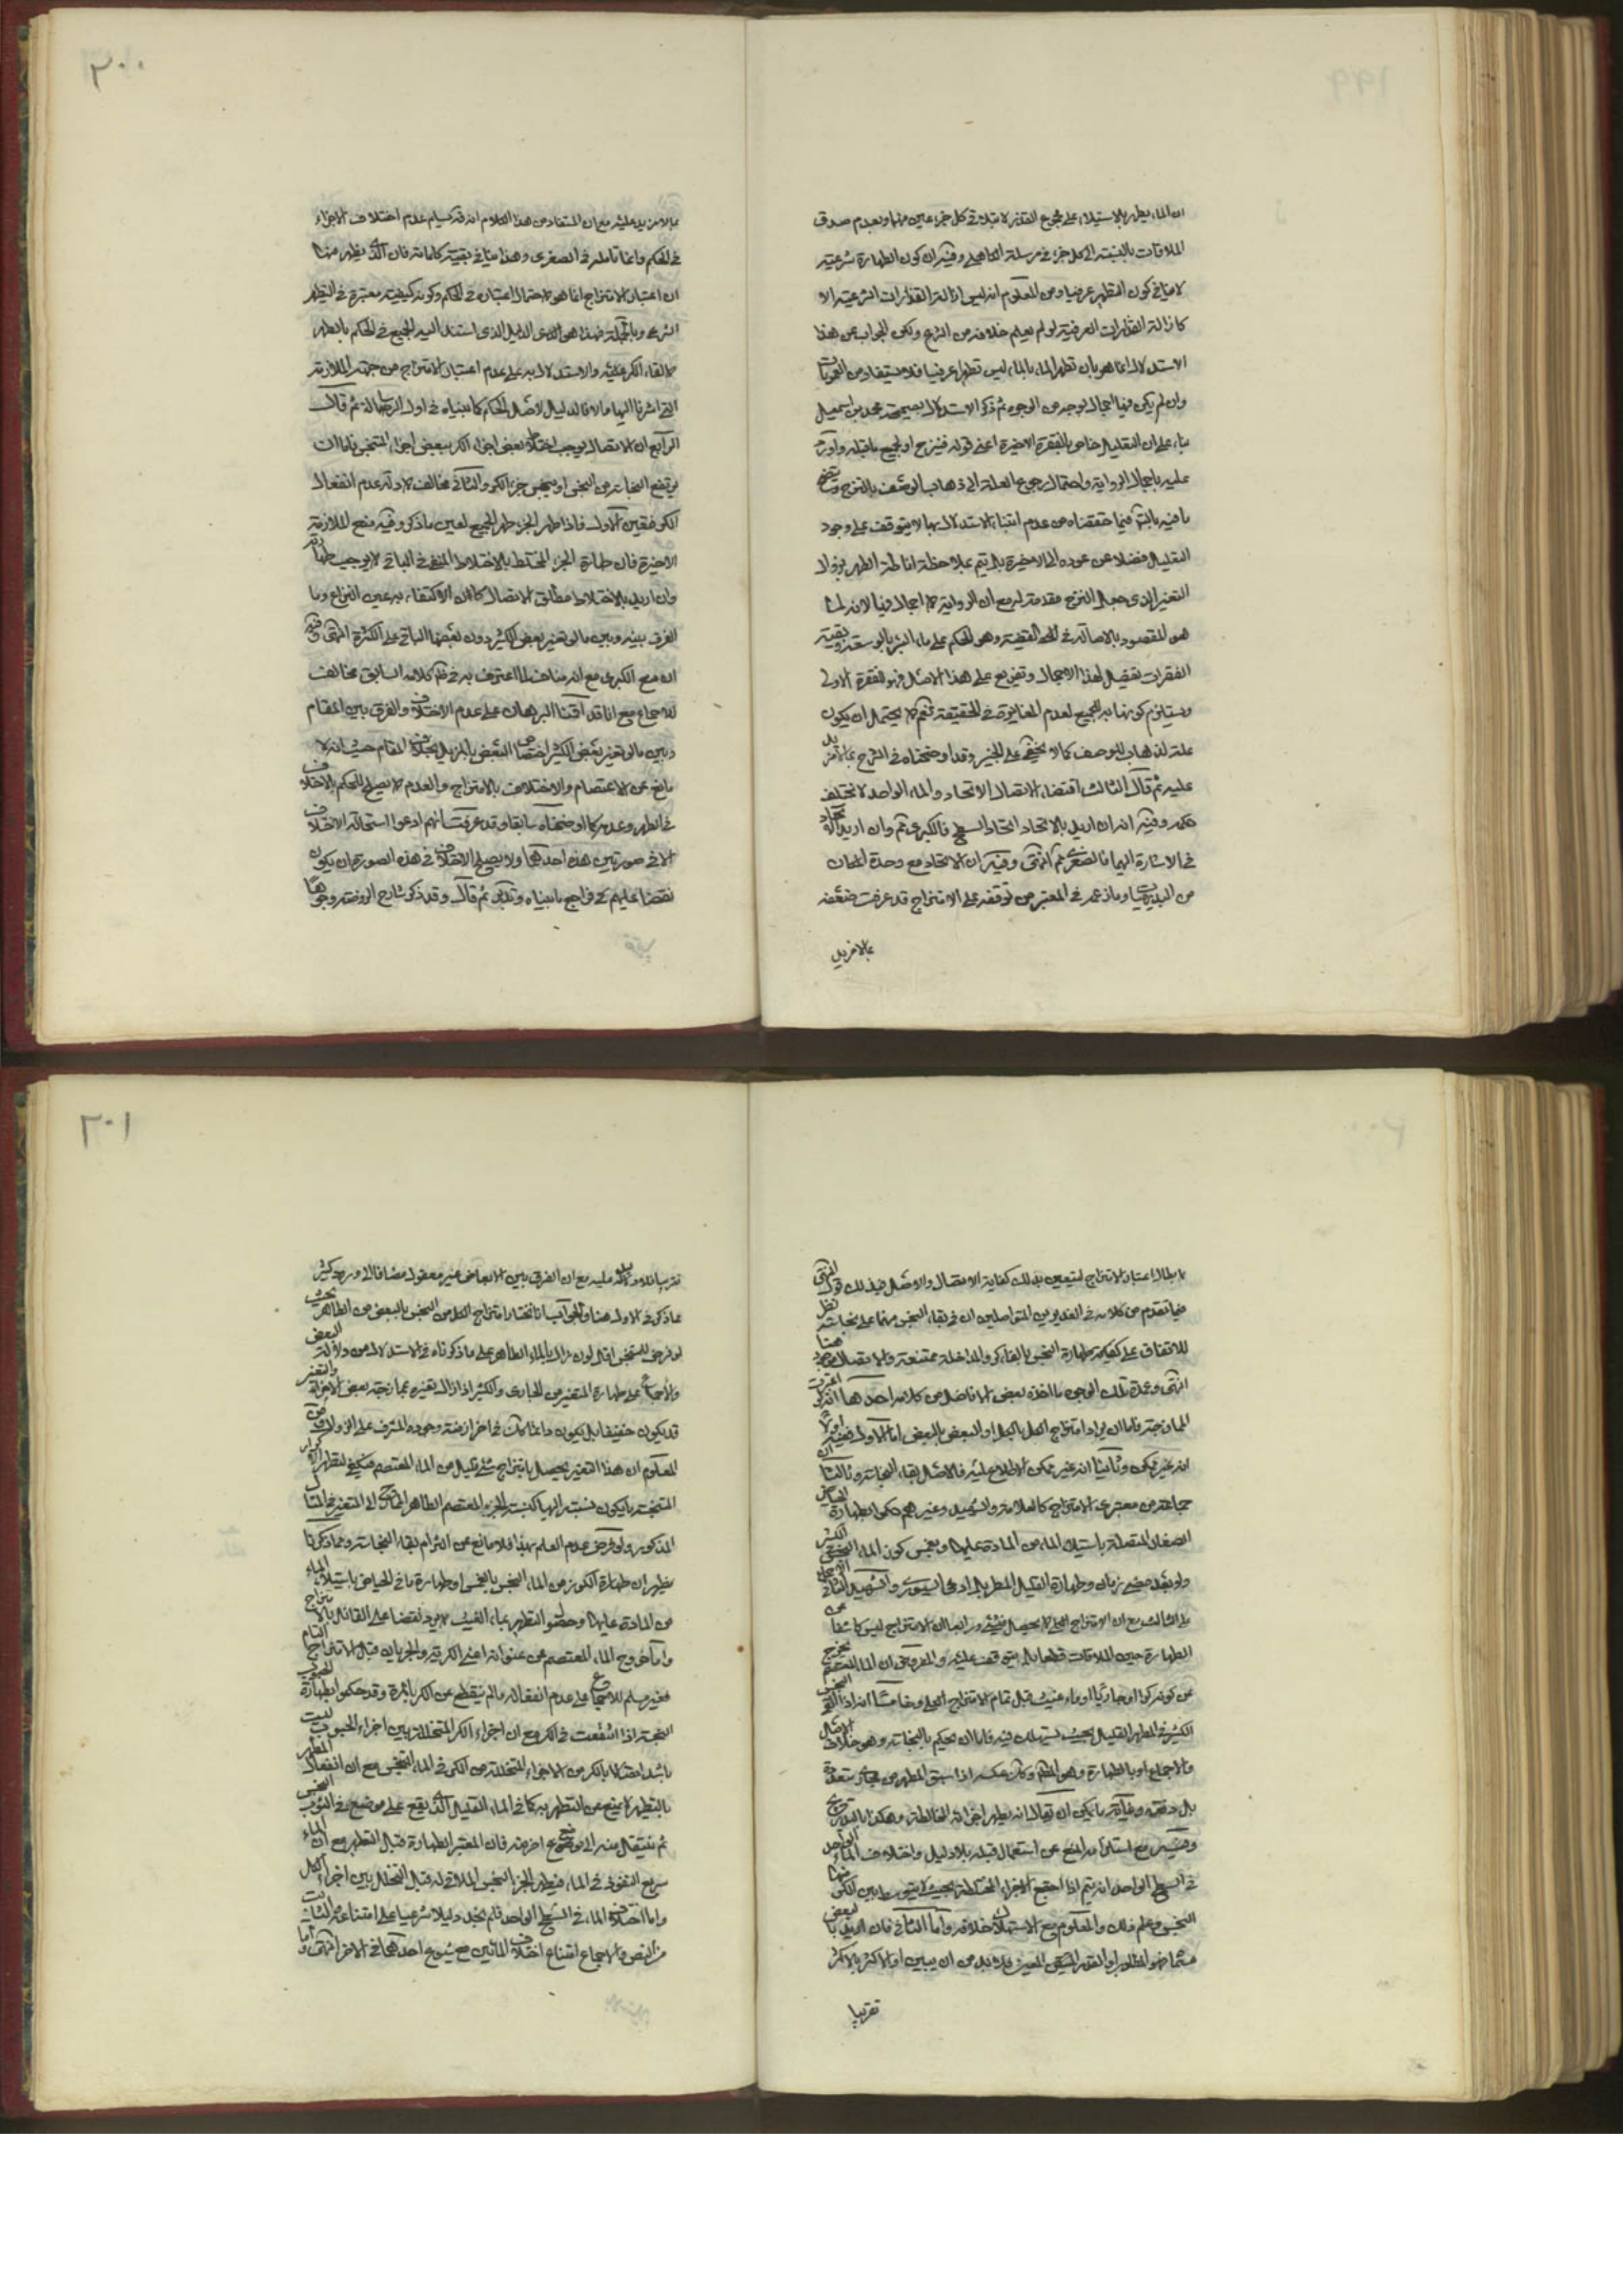 ان الماء يطهر بالاستيلاء على مجموع القذر لا بملاقى كل جزء عين منها وبعدم صدق
الملاقات بالنسبة الى كل جزء في مرسلة الكاهلى وفيه ان كون الطهارة شرعية
لا ينافي كون التطهر عرفيا ومن المعلوم انه ليس ازالة القذارات الشرعية الا
كازالة القذارات العرفية لو لم يعلم خلافه من الشرع ولكن الجواب عن هذا
الاستدلال انما هو بان تطهر الماء بالماء ليس تطهرا عرفيا فلا يستفاد من العمومات
وان لم يكن فيها اجمال بوجه من الوجوه ثم ذكر الاستدلال بصحيحة محمد بن اسمعيل
بناء على ان التعليل خاص بالفقرة الاخيرة اعنى قوله فينزح او لجميع ما قبله واورد
عليه باجمال الرواية واحتمال رجوع العلة الى ذهاب الوصف بالنزح ويتضح
ما فيه بالتأمل فيما حققناه من عدم ابتناء الاستدلال بها لا يتوقف على وجود
التعليل فضلا عن عوده الى الاخيرة بل يتم بملاحظة اناطة الطهر بزوال
التغير الذى جعل النزح مقدمة له مع ان الرواية لا اجمال فيها لان لها
هو المقصود بالاصالة في القضية وهو الحكم على ماء البئر بالوسعة وبقية
الفقرات تفصيل لهذا الاجمال وتفريع على هذا الاصل فهو الفقرة الاولى
ويستلزم كونها به للجميع لعدم المغايرة في الحقيقة نعم لا يحتمل ان يكون
علة لذهاب الوصف كما لا يخفى على الخبير وقد اوضحناه في الشرح بما لا مزيد
عليه ثم قال الثالث اقتضاء الاتصال الاتحاد والماء الواحد لا تختلف
حكمه وفيه انه ان اريد بالاتحاد اتحاد السطح فالكبرى ثم وان اريد الاتحاد
في الاشارة اليها فالصغرى ثم انتهى وفيه ان الاتحاد مع وحدة المكان
من البديهيات وما زعمه في المعتبر من توقفه على الامتزاج قد عرفت ضعفه
بما لا مزيد
٢٠٠
بما لا مزيد عليه مع ان المستفاد من هذا الكلام انه قد سلم عدم اختلاف الاجزاء
في الحكم وانما تأمله في الصغرى وهذا ينافي بقية كلماته فان الذى يظهر منها
ان اعتبار الامتزاج انما هو لاحتمال اعتباره في الحكم وكونه كيفية معتبرة في التطهر
الشرعي وبالجملة فهذا هو الدليل الذى استند اليه الجميع في الحكم بالطهر
بالقاء الكر عليه والاستدلال به على عدم اعتبار الامتزاج من جهة الملازمة
التي اشرنا اليها والا فالدليل لاصل الحكم كما بيناه في اول الرسالة ثم قال
الرابع ان الاتصال يوجب اختلاط بعض اجزاء الكر ببعض اجزاء المتنجس فاما ان
يرتفع النجاسة من النجس او يتنجس جزء الكر والثاني مخالف لادلة عدم انفعال
الكر فتعين الاول فاذا طهر الجزء طهر الجميع لعين ما ذكر وفيه منع الملازمة
الاخيرة فان طهارة الجزء المختلط بالاختلاط المنفي في الباقي لا يوجب طهارته
وان اريد بالاختلاط مطلق الاتصال كان الاكتفاء به عين النزاع وما
الفرق بينه وبين ما لو تغير بعض الكثير دون بعضها الباقي على الكثرة انتهى وفيه
ان منع الكبرى مع انه مناف لما اعترف به في كلامه السابق مخالف
للاجماع مع انا قد اقمنا البرهان على عدم الاختلاف والفرق بين المقام
وبين ما لو تغير بعض الكثير اختصاص البعض بالمزيل بخلاف المقام حيث انه لا
مانع عن الاعتصام والاختلاف بالامتزاج والعدم لا يصلح للحكم بالاختلاف
في الطهر وعدمه كما اوضحناه سابقا وقد عرفت انهم ادعوا استحالة الاختلاف
الا في صورتين هذه احدهما ولا يصلح الاختلاف في هذه الصورة ان يكون
نقضا عليهم فراجع ما بيناه وتدبر ثم قال وقد ذكر شارح الروضة وجوها
لابطال اعتبار الامتزاج ليتعين بذلك كفاية الاتصال والاصل فيه ذلك قوله
فيما تقدم من كلامه في الغديرين المتواصلين ان في بقاء النجس منهما على نجاسته نظر
للاتفاق على كيفية طهارة النجس بالقاء كر والمداخلة ممتنعة والاتصال موجود هنا
انتهى وعمدة تلك الوجوه ما اخذه بعض الافاضل من كلامه احدها انه لو اعتبرت
الممازجة فاما ان يراد امتزاج الكل بالكل او البعض بالبعض اما الاول ففيه اولا
انه غير ممكن وثانيا انه غير ممكن الاطلاع عليه فالاصل بقاء النجاسة وثالثا ان
جماعة من معتبرى الامتزاج كالعلامة والشهيد وغيرهم حكموا بطهارة الحياض
الصغار المتصلة باستيلاء الماء من المادة عليها وبعض كون الماء النجس الكثير
ولو بعد مضى زمان وطهارة القليل المطر بل ادعى السيورى والشهيد الثاني الاجماع
على الثالث مع ان الامتزاج الكل لا يحصل فيه ورابعا ان الامتزاج ليس كاشفا عن
الطهارة حين الملاقات قطعا بل يتوقف عليه والمفروض ان الماء المعتصم يخرج
عن كونه كرا او جاريا او ماء غيث قبل تمام الامتزاج الكل وخامسا انه اذا القى النجس
الكثير في المطهر القليل بحيث يستهلك فيه فاما ان يحكم بالنجاسة وهو خلاف الاصل
والاجماع او بالطهارة وهو المطلوب وكان عكسه اذا سبق المطهر من مجار متعددة
بل دفعة وغاية ما يمكن ان يقال انه يطهر اجزائه المخالطة وهكذا بالتدريج
وفيه مع استلزامه المنع عن استعمال قبله بلا دليل واختلاف الماء الواحد
في السطح الواحد انه يتم اذا اجتمع الاجزاء المختلطة بحيث لا يتوسط بين الكر منها
النجس وعلم ذلك والمعلوم مع الاستهلاك خلافه واما الثاني فان اريد البعض
مسمّاه فهو المطلوب او القدر المتيقن المعين فلا بد من ان يبين او الاكثر بالاكثر
تقريبا
٢٠١
تقريبا فلا دلالة عليه مع ان الفرق بين الابعاض غير معقول مضافا الى ورود كثير
مما ذكر في الاول هنا والجواب انا نختار امتزاج الكل من النجس بالبعض من الطاهر بحيث
لو فرض للنجس اقل لون زال بالماء الطاهر على ما ذكرناه في الاستدلال من دلالة البعض
والاجماع على طهارة المتغير من الجارى والكثير اذا زال تغيره بممازجة بعض الاجزاء والتغير
قد يكون خفيفا بل يكون دائما كذلك في اخر ازمنة وجوده المشرف على الزوال من
المعلوم ان هذا التغير يحصل بامتزاج شئ قليل من الماء المعتصم فيكفى لتطهر
المتنجسة ما يكون نسبته اليها كنسبة الجزء المعتصم الطاهر الممازج الى التغير في المثال
المذكور ولو فرض عدم العلم بهذا فلا مانع من التزام بقاء النجاسة ومما ذكرنا
يظهر ان طهارة الكوز من الماء النجس بالغمس او طهارة ما في الحياض باستيلاء الماء
من المادة عليها وحصول التطهر بماء الغيث لا يرد نقضا على القائل بالامتزاج
واما خروج الماء المعتصم عن عنوانه اعنى الكرية والجريان قبل الامتزاج التام
فغير مسلم للاجماع على عدم انفعاله ما لم ينقطع عن الكر بالمرة وقد حكموا بطهارة الحبوب
النجسة اذا انتقعت في الكر مع ان اجزاء الكر المتخللة بين اجزاء الحبوب ليست
باشد اتصالا بالكر من الاجزاء المتخللة من الكر في الماء النجس مع ان انفعال المطهر
بالتطهر لا يمنع عن التطهر به كما في الماء القليل الذى يقع على موضع من الثوب النجس
ثم ينتقل منه الى موضع اخر منه فان المعتبر الطهارة قبل التطهر مع ان الماء
سريع النفوذ في الماء فيطهر الجزء النجس الملاقى له قبل التخلل بين اجزاء الكل
واما اختلاف الماء في السطح الواحد فلم نجد دليلا شرعيا على امتناعه والثابت
من النص والاجماع امتناع اختلاف المائين مع شيوع احدهما في الاخر انتهى واما